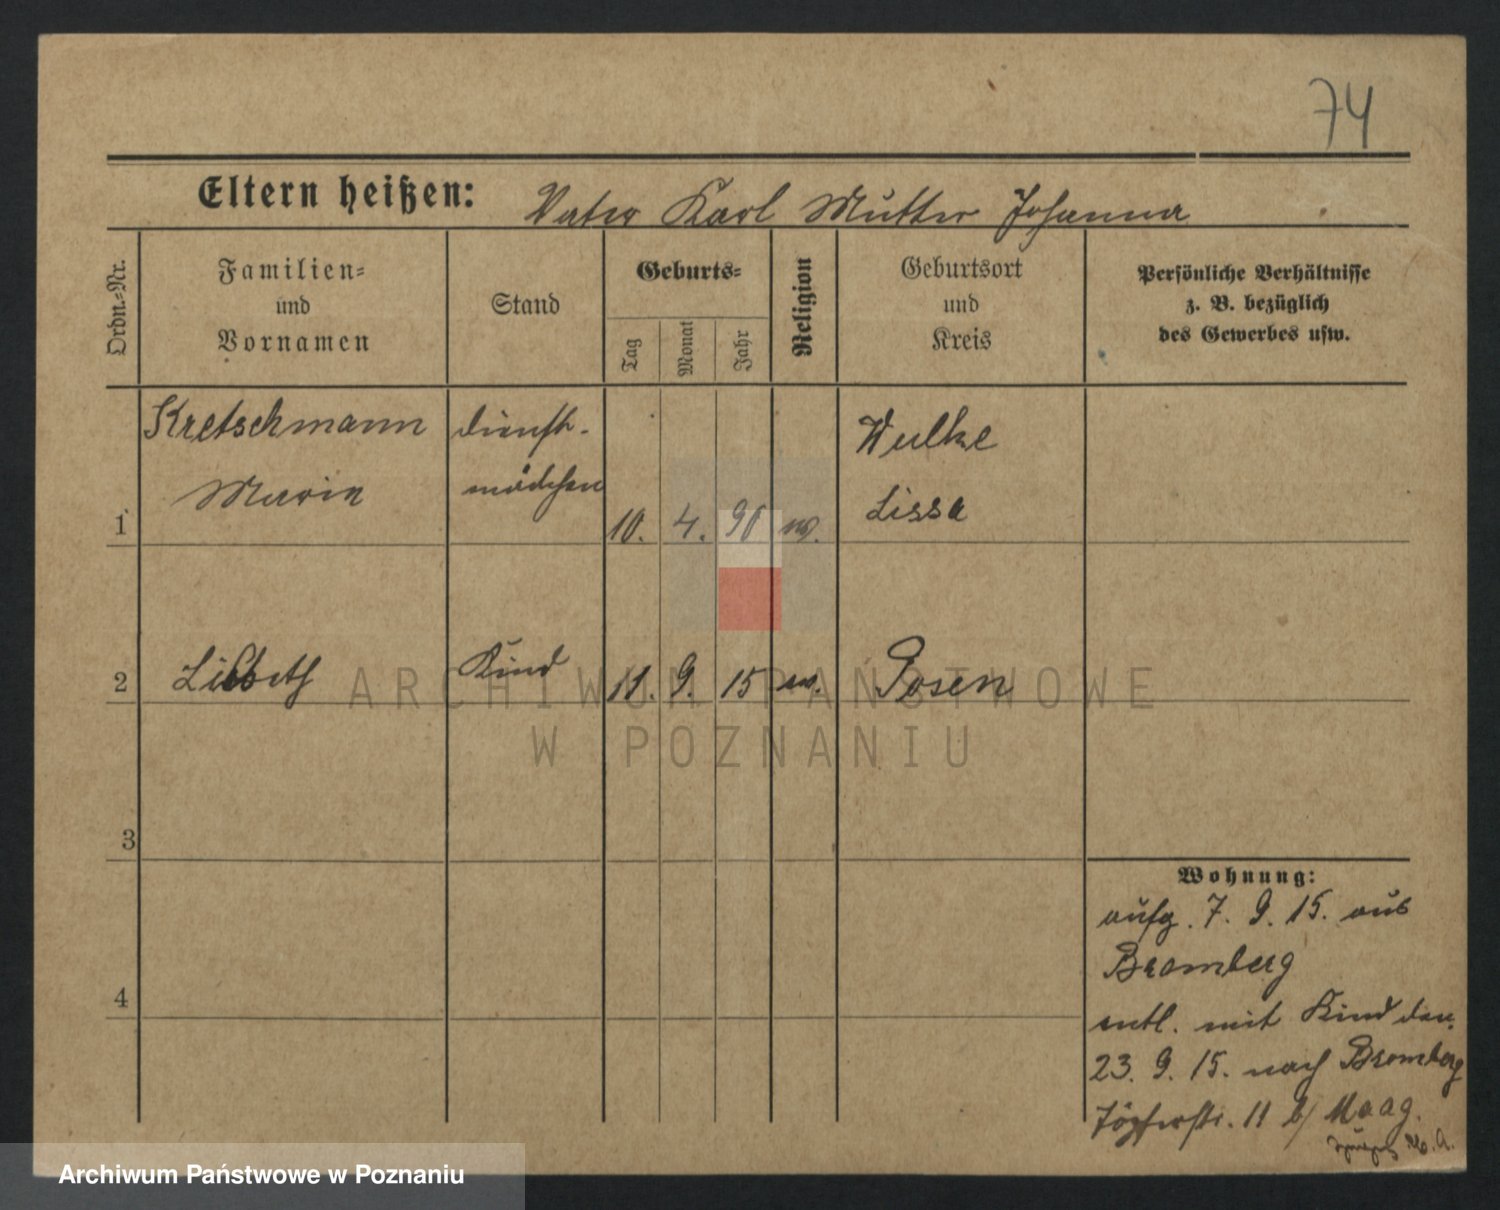 74
Eltern heißen: Vater Karl Mutter Johanna
Ordn.-Nr.
Familien- und Vornamen
Stand
Geburts-
Tag
Monat
Jahr
Religion
Geburtsort und Kreis
Persönliche Verhältnisse
z. B. bezüglich
des Gewerbes usw.
Kretschmann dienst- Wulke
1 Marie mädchen 10. 4. 90 ev. Lissa
2 Lisbeth Kind 11. 9. 15 ev. Posen
ARCHIWUM PAŃSTWOWE
W POZNANIU
3
Wohnung:
aufg. 7. 9. 15. aus
Bromberg
4
entl. mit Kind den
23. 9. 15. nach Bromberg
Töpferstr. 11 b/ Maag.
Archiwum Państwowe w Poznaniu